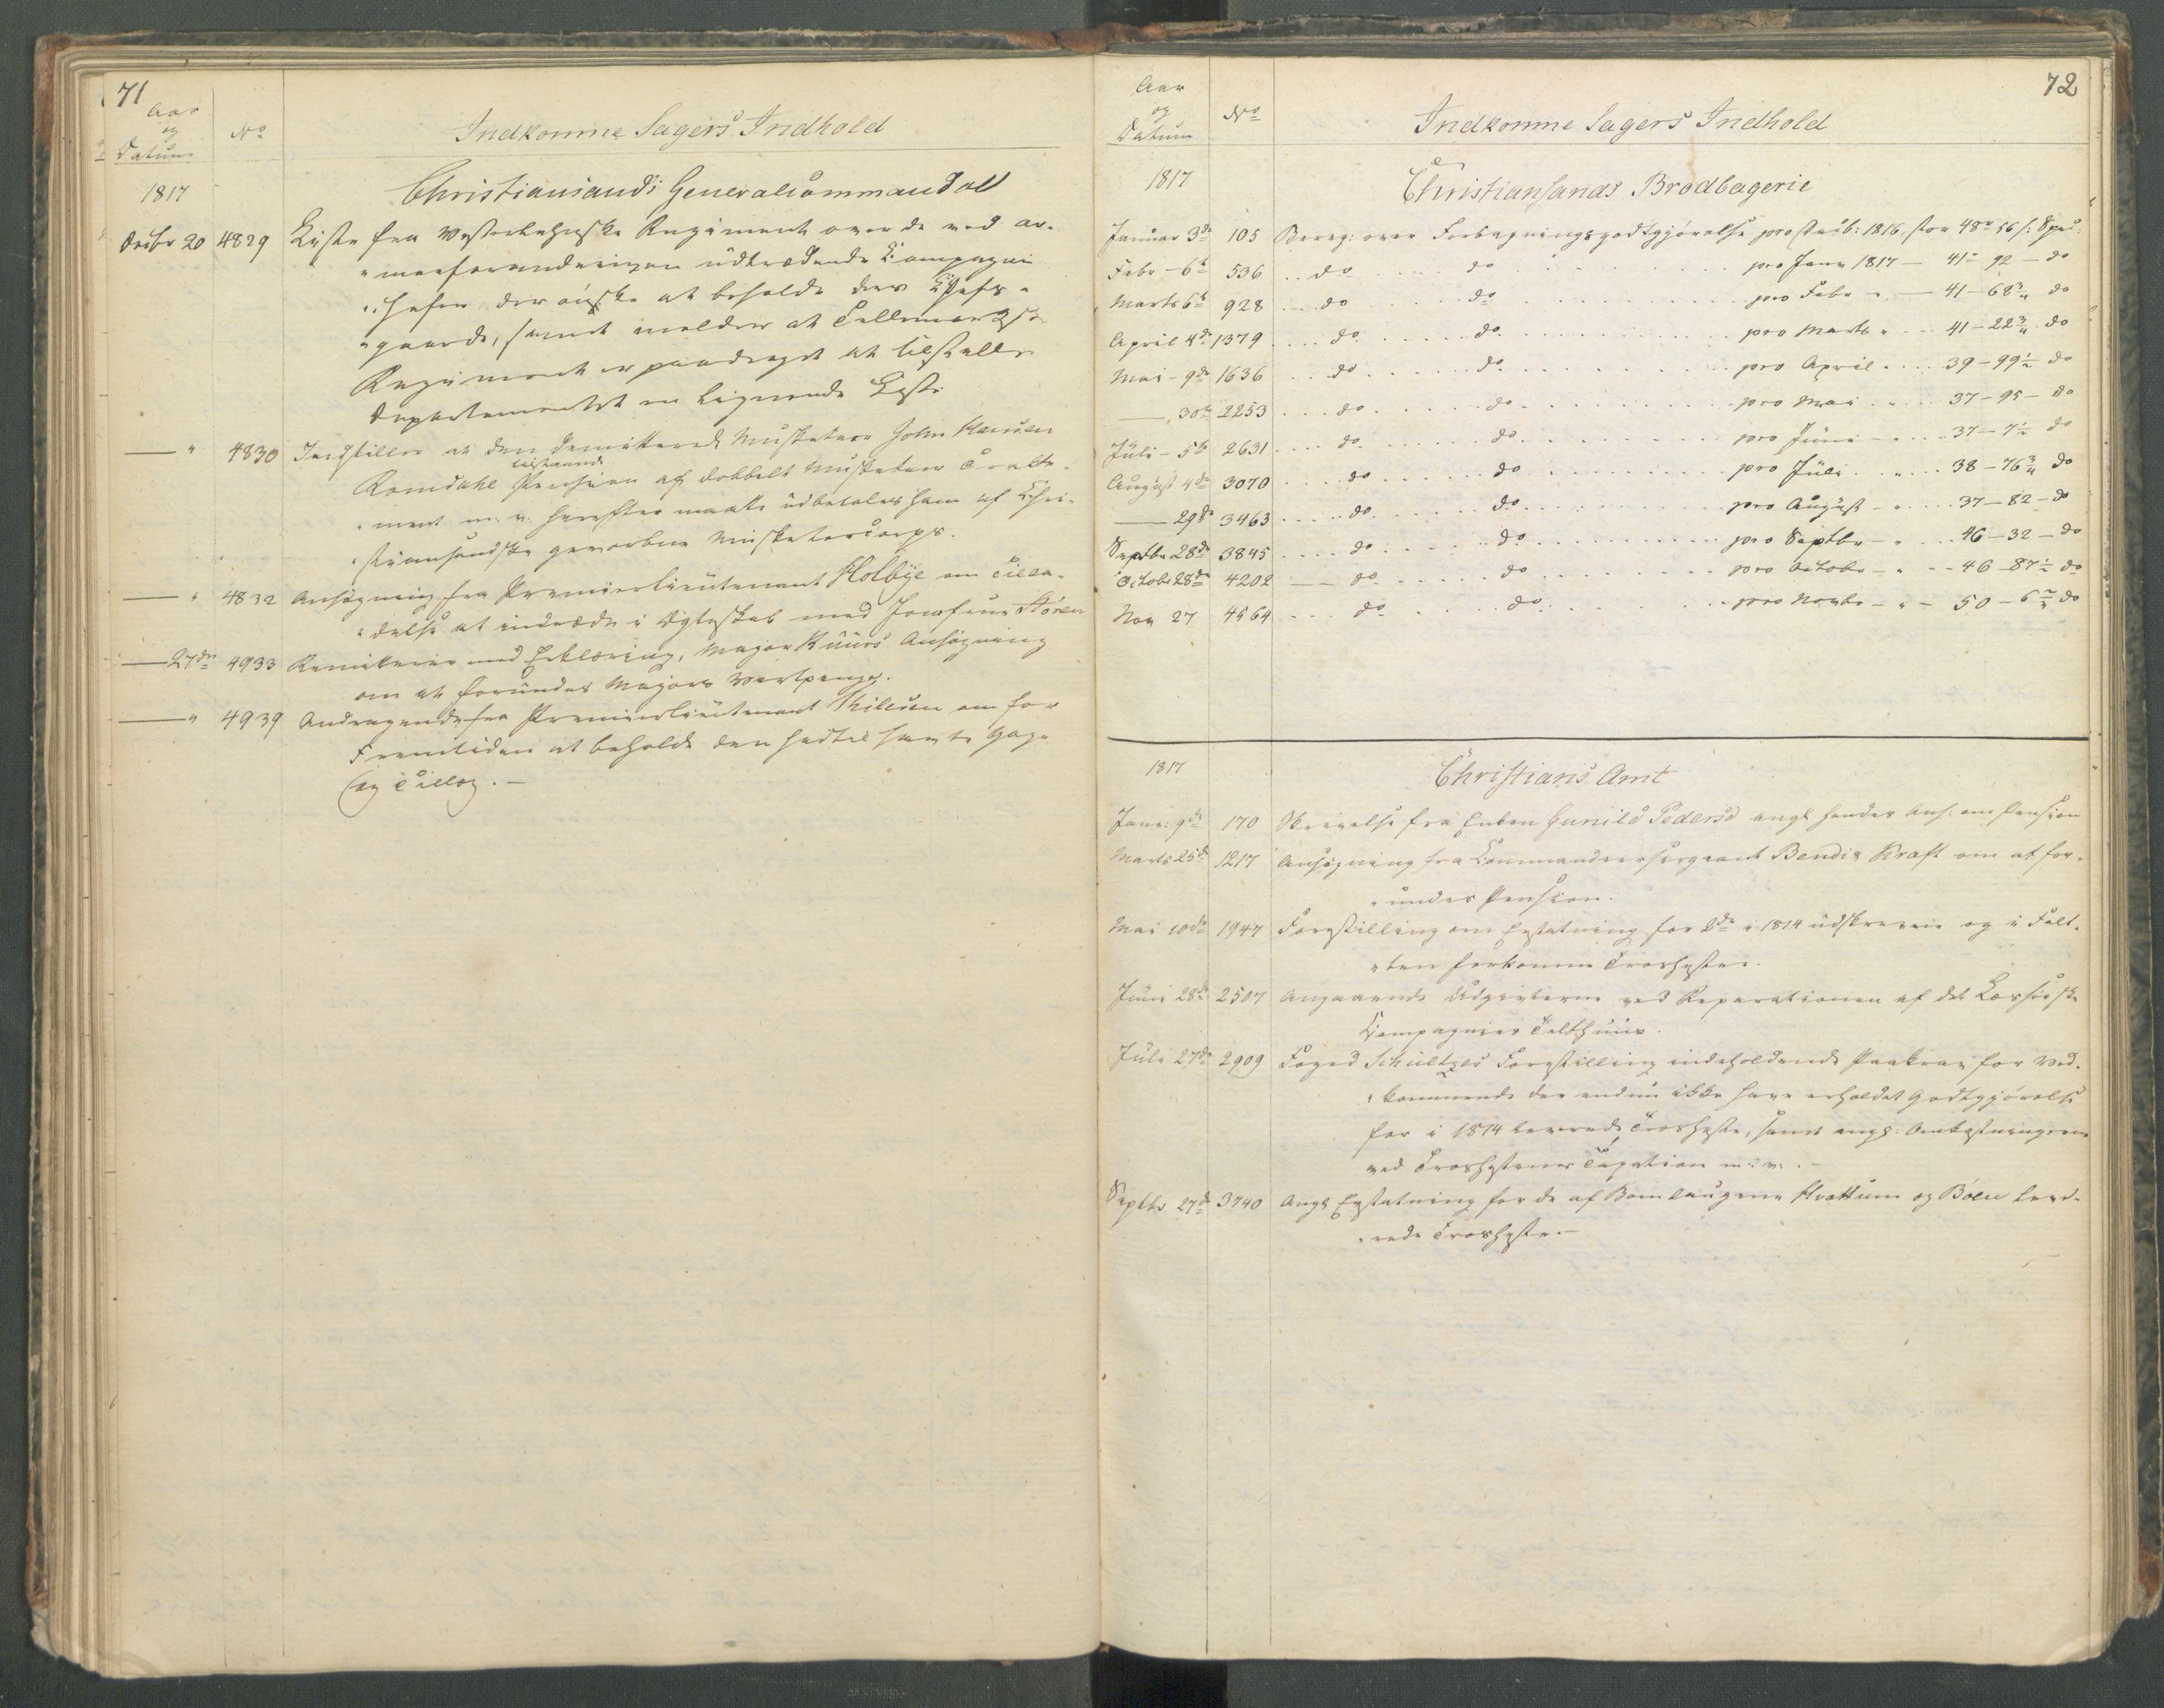 71
Aar
og
Datum
No
Indkomne Sagers Indhold
1817
Christiansands Generalcommando
Decbr 20 4829 Liste fra Vesterlehnske Regiment over de ved ar-
"meeforandringen udtrædende Compagni
"chefer, der ønske at beholde deres Chefs-
"gaarde, samt melder at Tellemarkske
Regiment er paadraget at tilstille
Departementet en lignende Liste
— " 4830 Indstiller at den demitterede Musketeer John Hansen
tilstaaede
Romdahl Pension af dobbelt Musketeer Tracte-
"ment m: v: herefter maatte udbetales ham af Chri-
"stiansandske gevorbne Musketeercorps.
— " 4832 Ansøgning fra Premierlieutenant Holbye om Tilla-
"delse at indtræde i Ægteskab med Jomfrue Støren
— 27de 4933 Remitterer med Erklæring, Major Kuurs Ansøgning
om at forundes Majors Vartpenge.
— " 4939 Andragende fra Premierlieutenant Nilsen om for
Fremtiden at beholde den hidtil havte Gage
og Tillæg. —
72
Aar
og
Datum
No
Indkomne Sagers Indhold
1817
Christiansands Brødbagerie
Januar 3de 105 Bereg: over Forbagningsgodtgjørelse pro Decb: 1816, stor 48 56 s: Spec:
Febr - 6te 536 .. do .... do .... pro Janr 1817 — 41 - 92 — do
Marts 6te 928 ... do .... do .... pro Febr " — 41 — 68¾ do
April 4de 1379 .... do .... do .... pro Marts " ... 41 — 22¾ do
Mai - 9de 1636 .. do .... do .... pro April .... 39 — 99½ do
— 30te 2253 .... do .... do .... pro Mai .... 37 — 95 — do
Juli - 5te 2631 .... do .... do .... pro Juni — .... 37 — 7½ do
August 4de 3070 .... do .... do .... pro Juli .... 38 — 76¾ do
— 29de 3463 .... do .... do .... pro August — .... 37 — 82 — do
Septbr 28de 3845 .... do .... do .... pro Septbr — .... 46 — 32 — do
Octobr 28de 4202 — do .... do .... pro Octobr — " — 46 — 87½ do
Nov 27 4564 ... do .... do .... pro Novbr — " — 50 — 6 do
1817
Christians Amt
Janr: 9de 170 Skrivelse fra Enken Gunild Pedersd angl hendes Ans: om Pension
Marts 25de 1217 Ansøgning fra Commandeersergeant Bendix Kraft om at for-
"undes Pension.
Mai 10de 1947 Forestilling om Erstatning for de i 1814 udskrevne og i Felt-
"ten forkomne Trosheste.
Juni 28de 2507 Angaaende Udgivterne ved Reparationen af det Lessøeske
Compagnies Telthuus.
Juli 27de 2909 Foged Schultzes Forestilling indeholdende Paakrav for Ved-
"kommende der endnu ikke have erholdet Godtgjørelse
for i 1814 leverede Trosheste, samt angl: Omkostningerne
ved Troshestenes Taxation m: v: . —
Septbr 27de 3740 Angl Erstatning for de af Bomlaugene Kvattum og Bøen leve-
"rede Trosheste. —